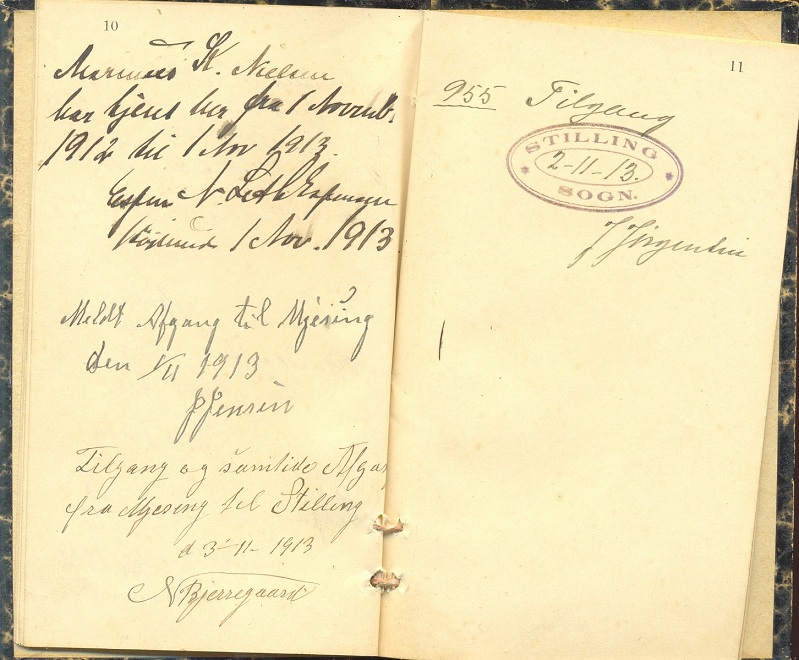 10
Marinus K. Nielsen
har tjent her fra 1 Novemb.
1912 til 1 Nov 1913.
N.
1 Nov. 1913
Meldt Afgang til Mjesing
den 1/11 1913
J Jensen
Tilgang og samtide Afga
fra Mjesing til Stilling
d 3-11-1913
N Bjerregaard
11
955 Tilgang
STILLING
2-11-13.
SOGN.
J Jörgensen